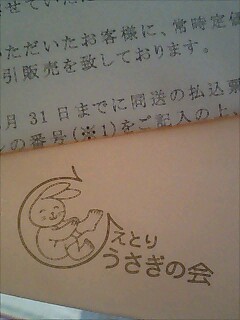 せていた
いただいたお客様に、常時定価
引販売を致しております。
月31日までに同送の払込票
の番号(※1)をご記入の上、
えとり
うさぎの会